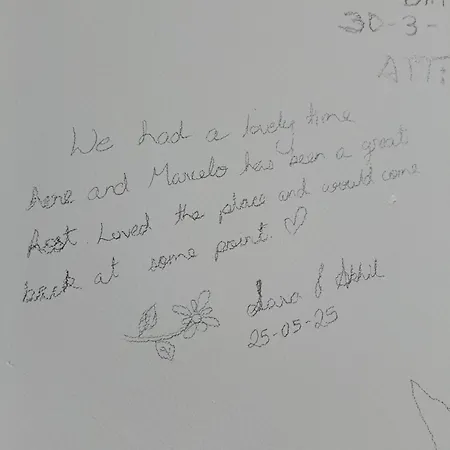 30-3-
ATT:
We had a lovely time
here and Marcelo has been a great
host. Loved the place and would come
back at some point. ♡
Sara & Akhil
25-05-25